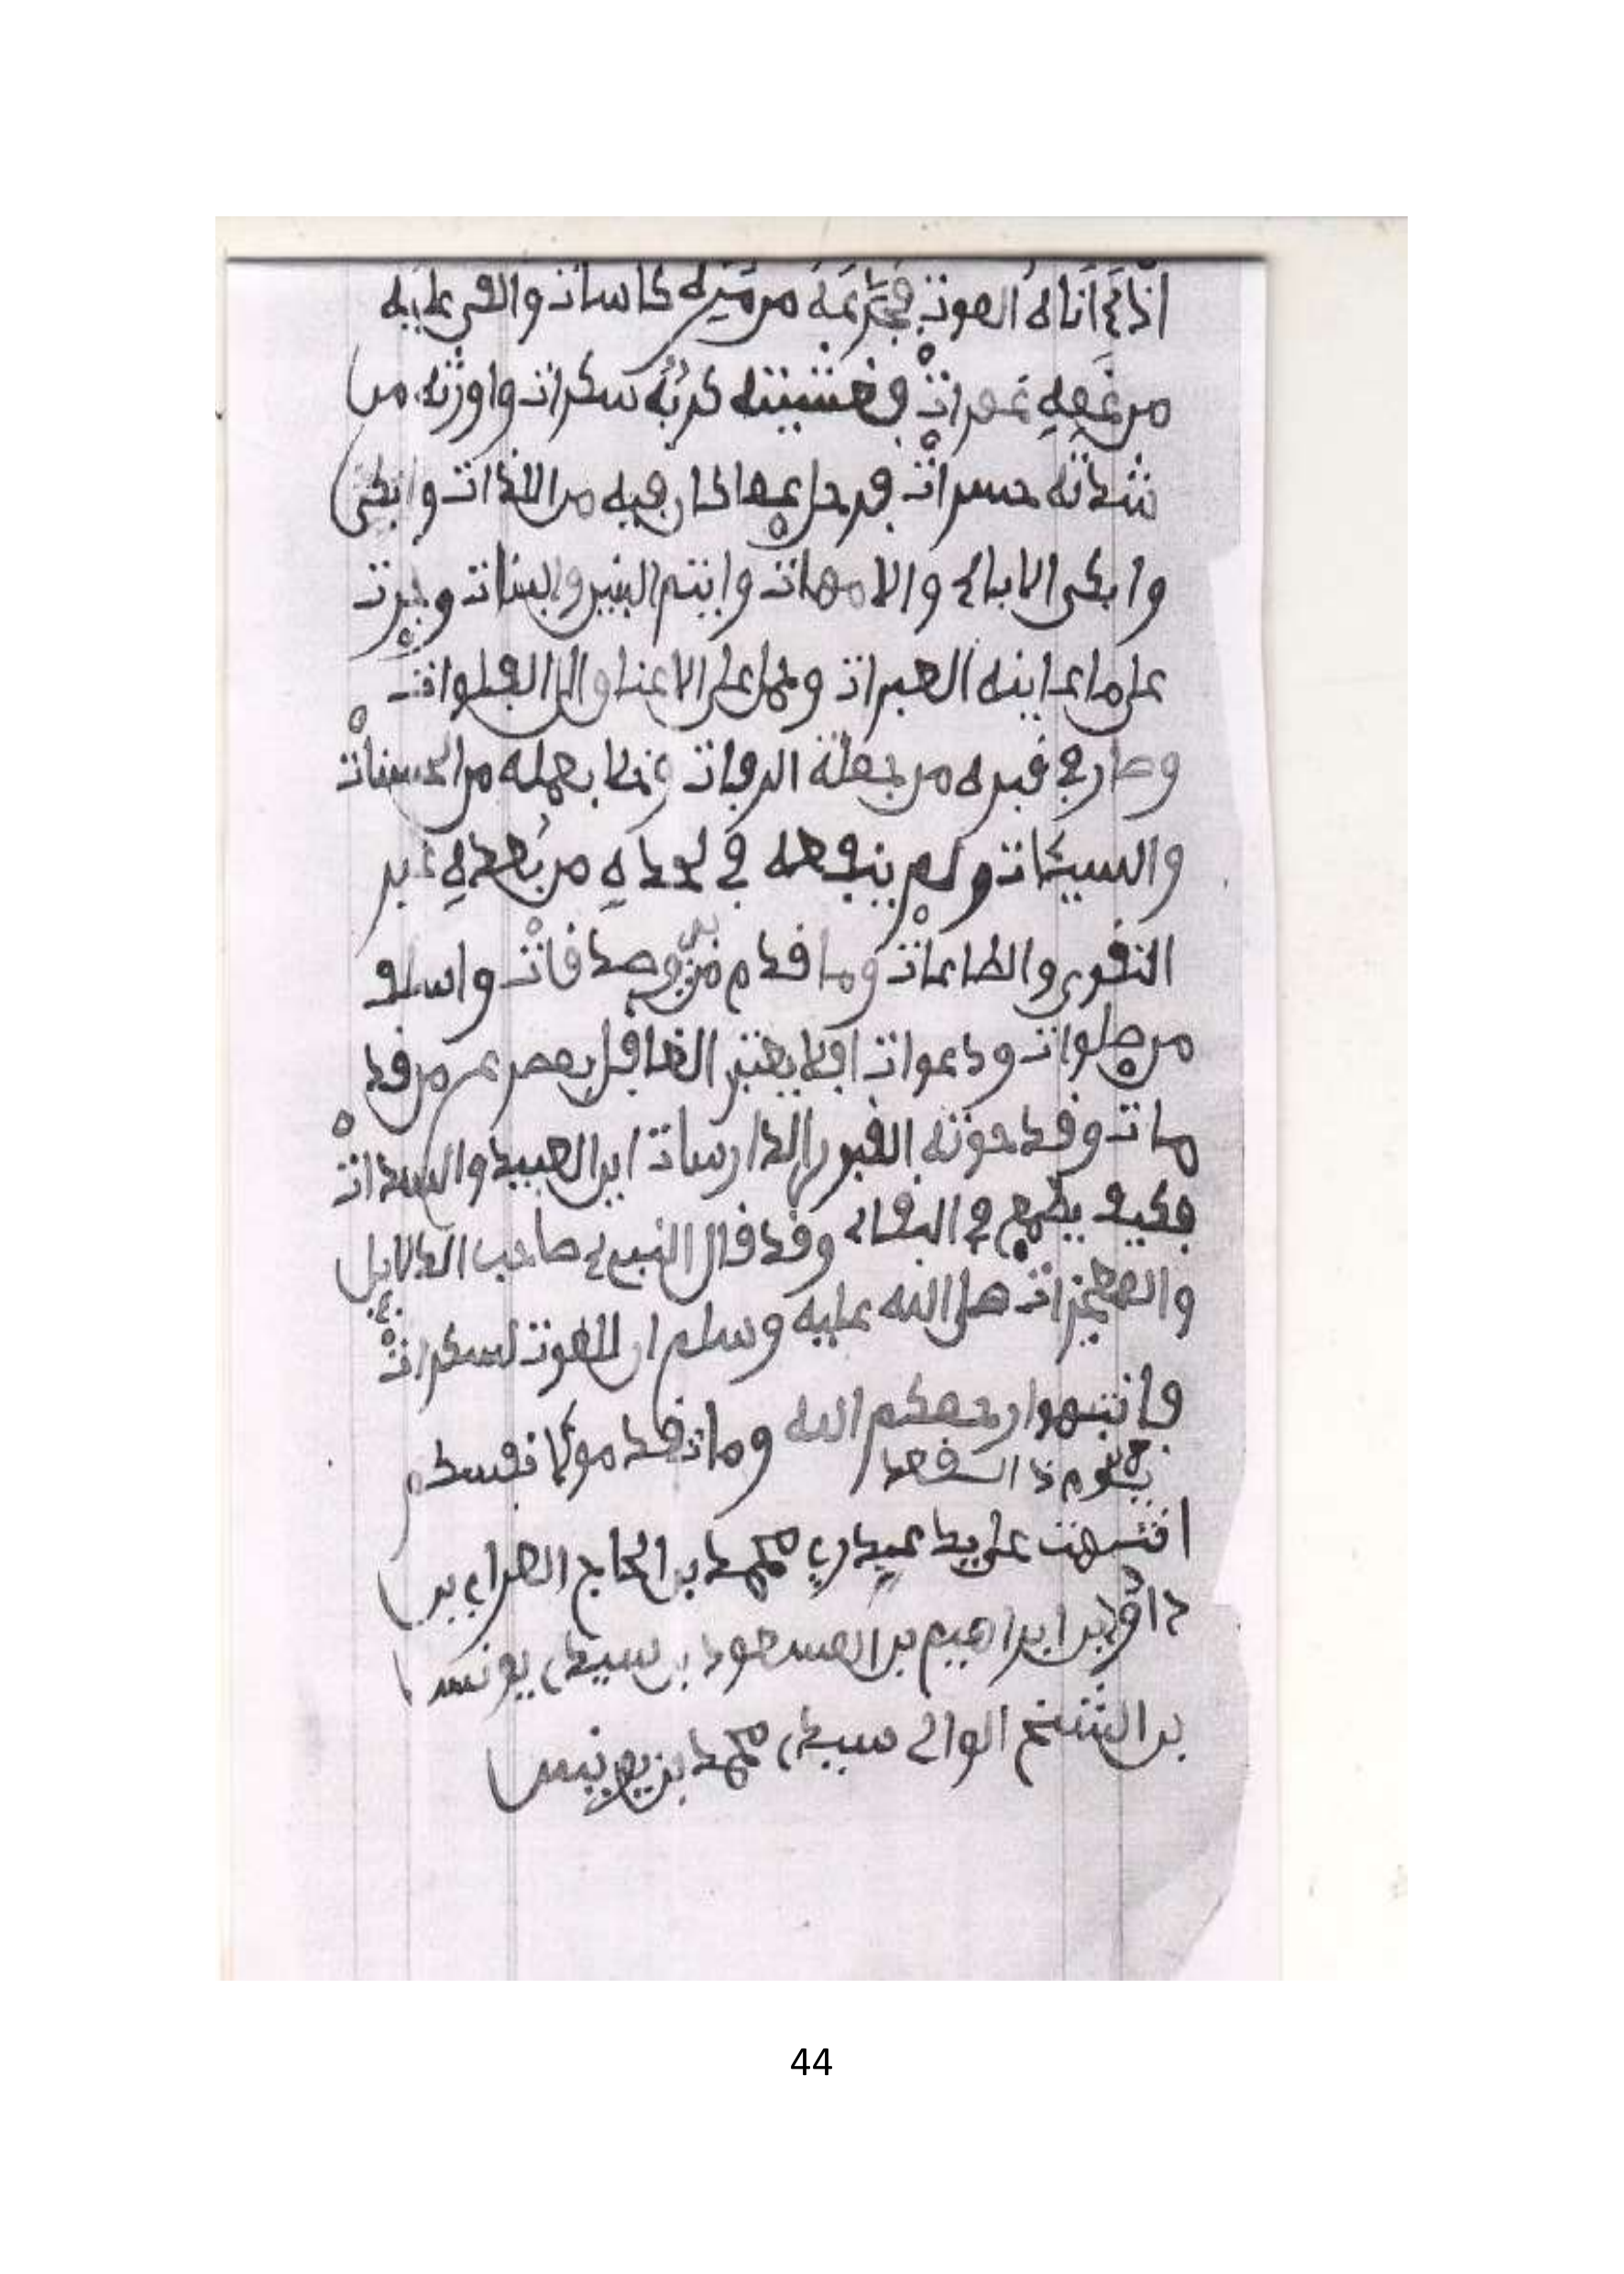 اذا أتاه الموت فجرعه من مره كاسات والقى عليه
من غمه غمرات فغشيته كربه سكرات واورثه من
شدته حسرات فرحل عما كان فيه من اللذات وابكى
وابكى الاباء والامهات وايتم البنين والبنات وجرت
على ما عاينه العبرات وحمل على الاعناق الى الفلوات
وصار في قبره من جملة الرفات بعمله من الحسنات
والسيئات ولم ينفعه في لحده من بعده غير
التقوى والطاعات وما قدم من وصدقات واسلف
من صلوات ودعوات افلا يعتبر الغافل بمصرع من قد
مات وقد حوته القبور الدارسات اين العبيد والسادات
فكيف يطمع في البقاء وقد قال النبيء صاحب الدلايل
والمعجزات صلى الله عليه وسلم ان للموت لسكرات
فانتبهوا رحمكم الله ومات قد مولا نفسدم
انتهت على يد عبيد ربي محمد بن الحاج
بن ابراهيم بن المسعود بن سيدي يونس
بن الشيخ الوالي سيدي محمد بن يونس
44